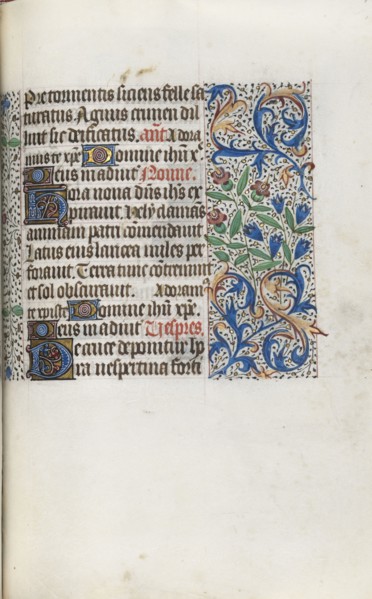 Pre tormentis siciens felle sa
turatus. Agnus crimen dil
luit sic deificatus. añt Adora
mus te xp̄e Domine ih̄u x̄.
Deus in adiut Nonne.
Hora nona dn̄s ih̄s ex
piravit. hely clamãs
animam patri cõmendavit
Latus eius lancea miles per
foravit. Terra tunc cõtremuit
et sol obscuravit. Adoram9
te xpiste Domine ih̄u xp̄e.
Deus in adiut Vespres.
De cruce deponitur ho
ra vespertina forti